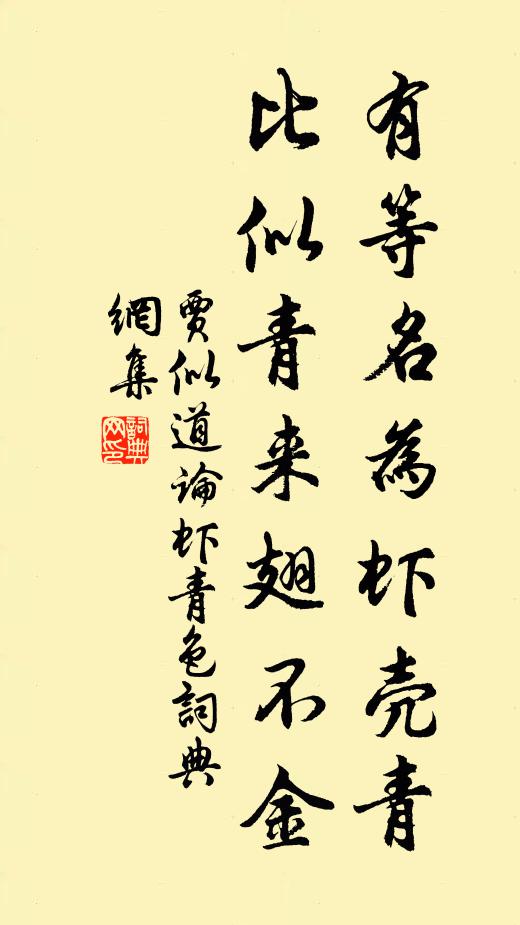 有等名為虾壳青
比似青来翅不金
賈似道論虾青色詞典
網集
詞典网印